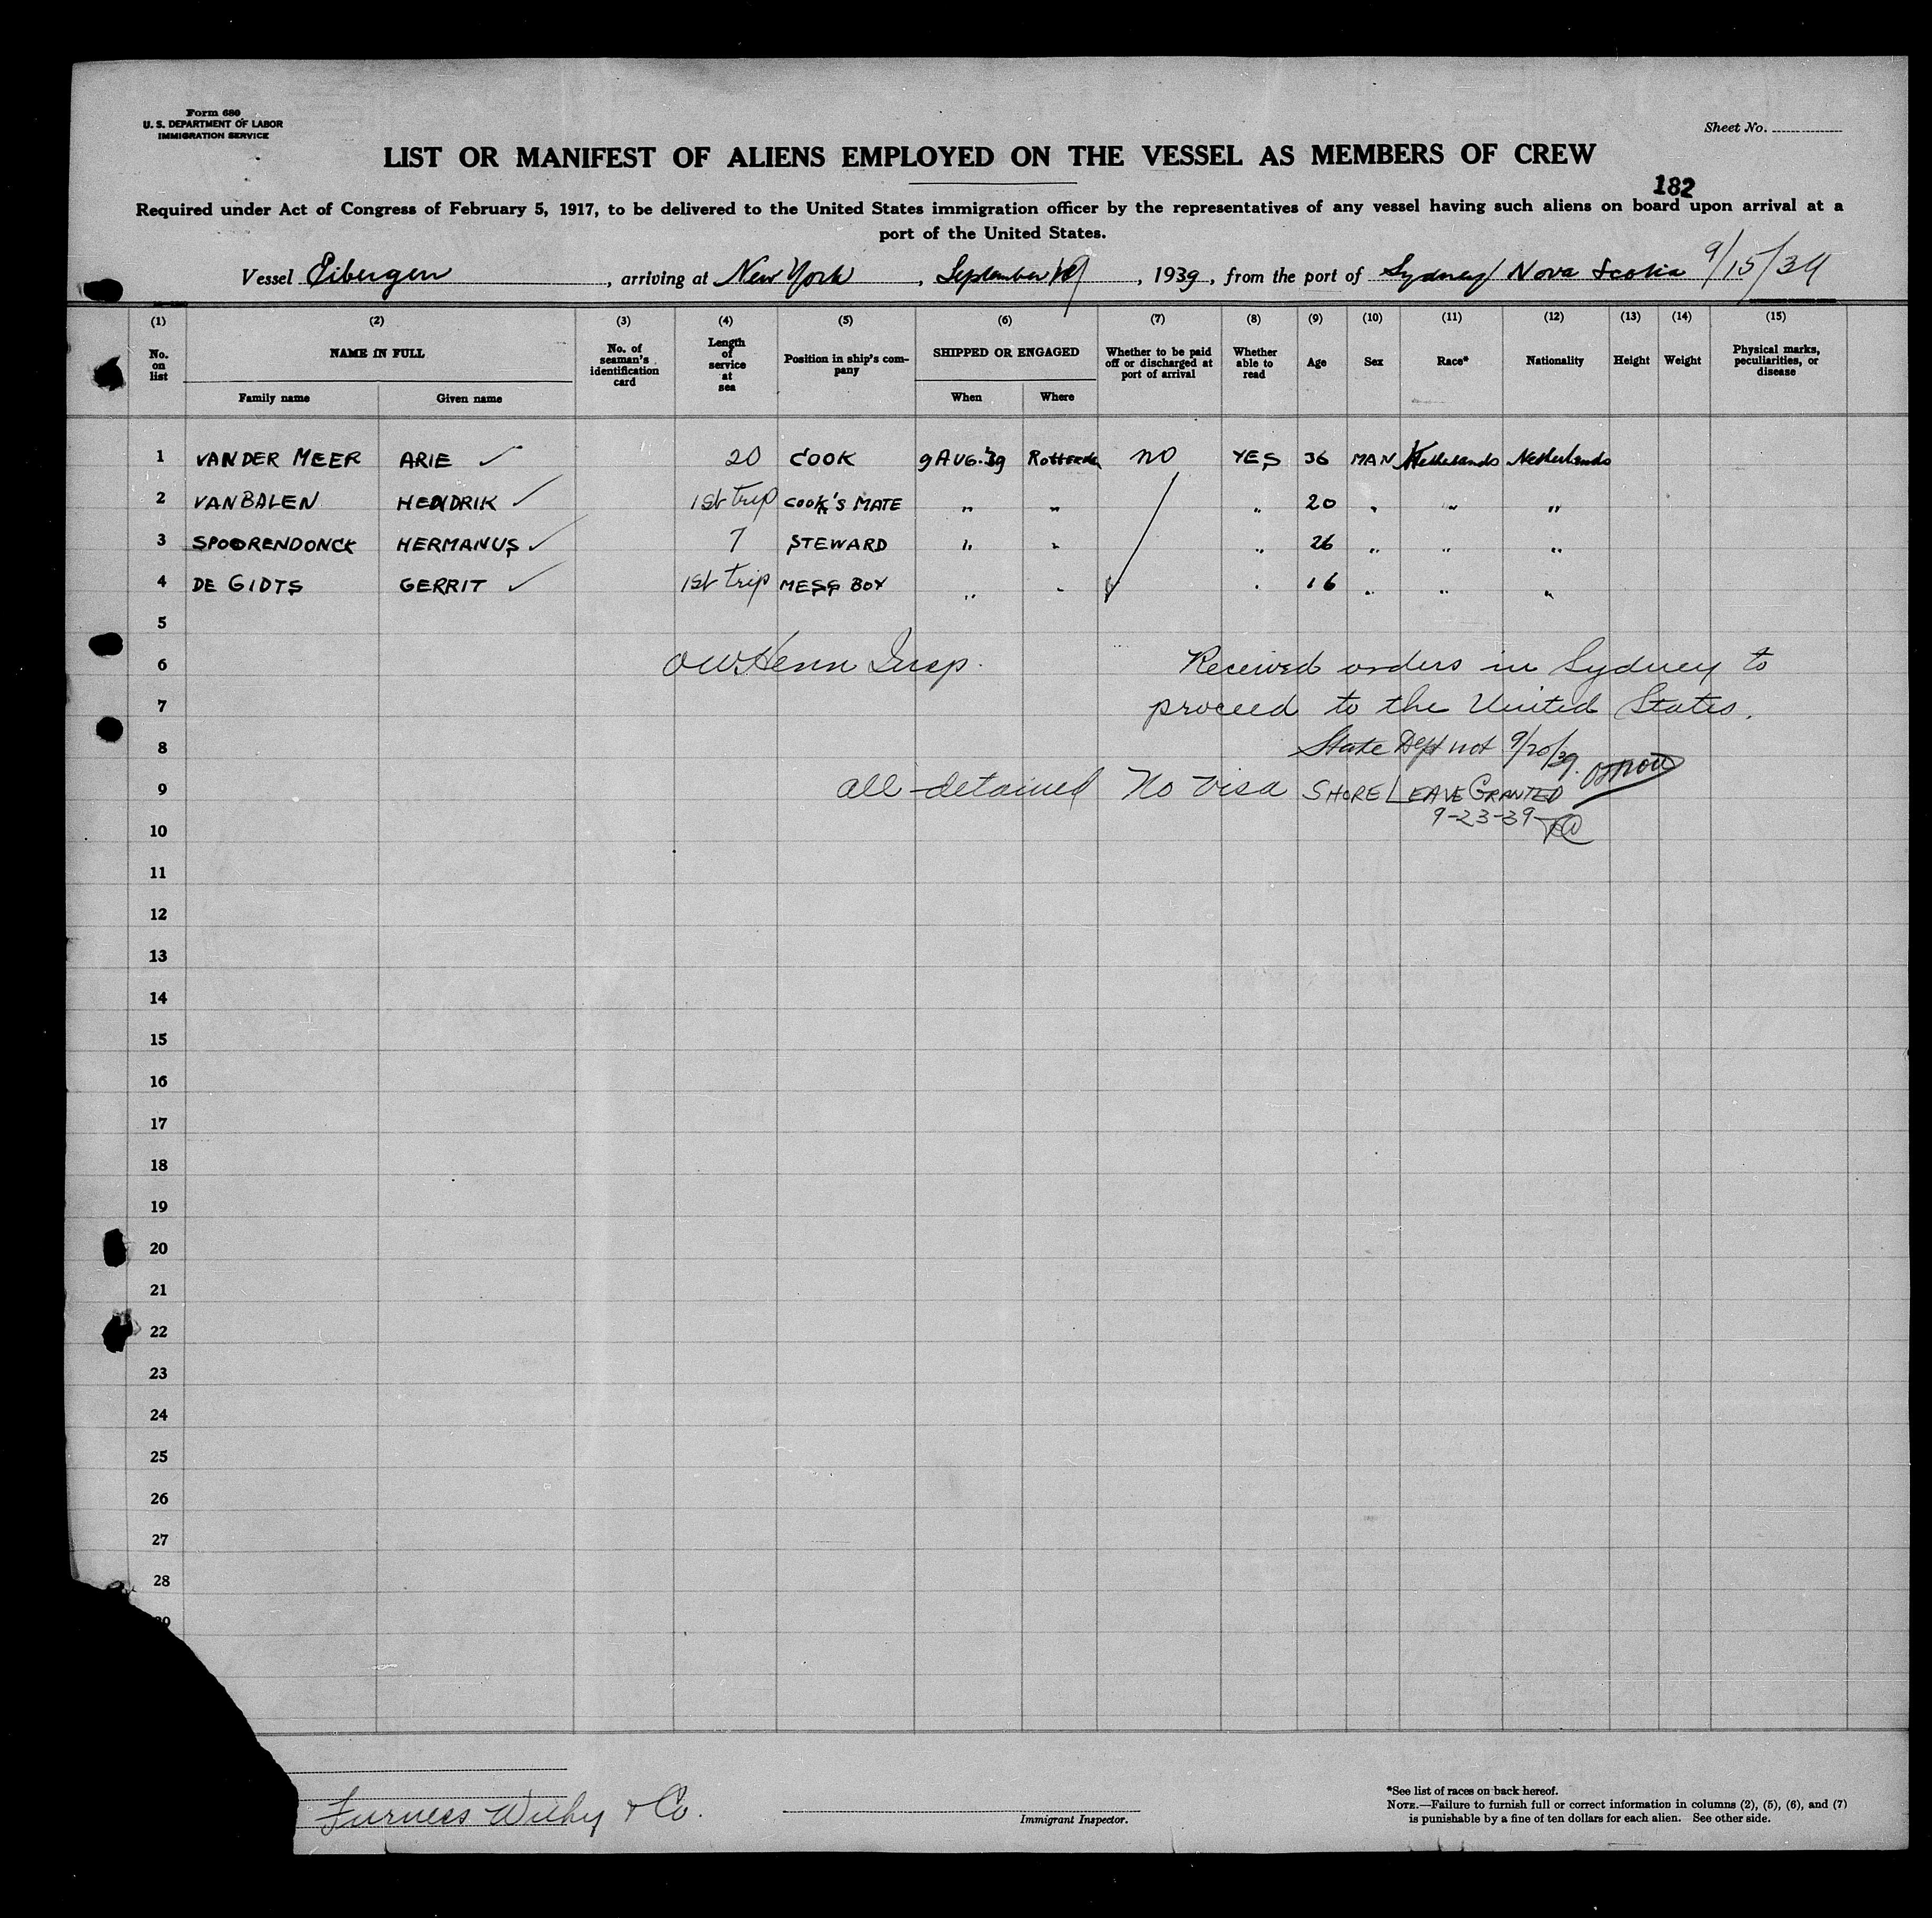 Form 680
U. S. DEPARTMENT OF LABOR
IMMIGRATION SERVICE
Sheet No.
LIST OR MANIFEST OF ALIENS EMPLOYED ON THE VESSEL AS MEMBERS OF CREW
182
Required under Act of Congress of February 5, 1917, to be delivered to the United States immigration officer by the representatives of any vessel having such aliens on board upon arrival at a
port of the United States.
Vessel Eibergen, arriving at New York, September 19, 1939, from the port of Sydney Nova Scotia 9/15/39
(1) (2) (3) (4) (5) (6) (7) (8) (9) (10) (11) (12) (13) (14) (15)
No. on list NAME IN FULL No. of seaman's identification card Length of service at sea Position in ship's company SHIPPED OR ENGAGED Whether to be paid off or discharged at port of arrival Whether able to read Age Sex Race* Nationality Height Weight Physical marks, peculiarities, or disease
Family name Given name When Where
1 VAN DER MEER ARIE ✓ 20 COOK 9 AUG. '39 Rotterdam no YES 36 MAN Netherlands Netherlands
2 VAN BALEN HENDRIK ✓ 1st trip COOK'S MATE " " " 20 " " "
3 SPOORENDONCK HERMANUS ✓ 7 STEWARD " " " 26 " " "
4 DE GIDTS GERRIT ✓ 1st trip MESS BOY " " " 16 " " "
5
6 Henn Insp. Received orders in Sydney to
7 proceed to the United States.
8 State Dept not 9/20/39.
9 all detained No visa SHORE LEAVE GRANTED
9-23-39
10
11
12
13
14
15
16
17
18
19
20
21
22
23
24
25
26
27
28
Furness Withy & Co.
Immigrant Inspector.
*See list of races on back hereof.
NOTE.—Failure to furnish full or correct information in columns (2), (5), (6), and (7)
is punishable by a fine of ten dollars for each alien. See other side.